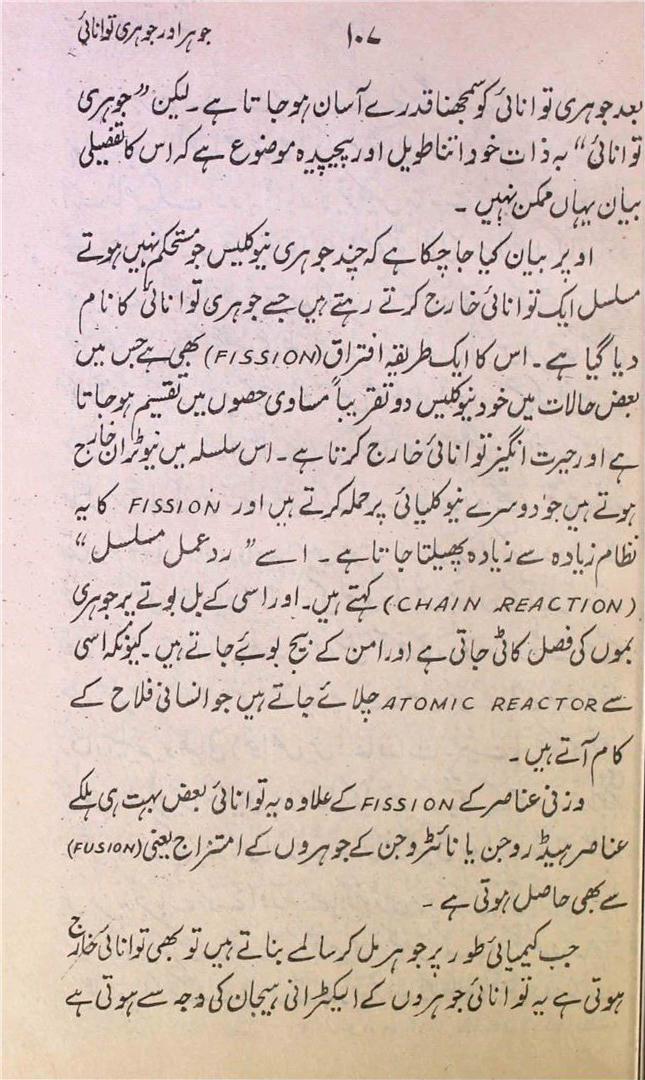 جوہر اور جوہری توانائی
۱۰۷
بعد جوہری توانائی کو سمجھنا قدرے آسان ہو جاتا ہے ۔ لیکن ”جوہری
توانائی“ بہ ذات خود اتنا طویل اور پیچیدہ موضوع ہے کہ اس کا تفصیلی
بیان یہاں ممکن نہیں ۔
اوپر بیان کیا جا چکا ہے کہ چند جوہری نیوکلیس جو مستحکم نہیں ہوتے
مسلسل ایک توانائی خارج کرتے رہتے ہیں جسے جوہری توانائی کا نام
دیا گیا ہے ۔ اس کا ایک طریقہ افتراق (FISSION) بھی ہے جس میں
بعض حالات میں خود نیوکلیس دو تقریباً مساوی حصوں میں تقسیم ہو جاتا
ہے اور حیرت انگیز توانائی خارج کرتا ہے ۔ اس سلسلہ میں نیوٹران خارج
ہوتے ہیں جو دوسرے نیوکلیائی پر حملہ کرتے ہیں اور FISSION کا یہ
نظام زیادہ سے زیادہ پھیلتا جاتا ہے ۔ اسے ”رد عمل مسلسل“
(CHAIN REACTION) کہتے ہیں۔ اور اسی کے بل بوتے پر جوہری
بموں کی فصل کاٹی جاتی ہے اور امن کے بیج بوئے جاتے ہیں ۔ کیونکہ اسی
سے ATOMIC REACTOR چلائے جاتے ہیں جو انسانی فلاح کے
کام آتے ہیں ۔
وزنی عناصر کے FISSION کے علاوہ یہ توانائی بعض بہت ہی ہلکے
عناصر ہیڈروجن یا نائٹروجن کے جوہروں کے امتزاج یعنی (FUSION)
سے بھی حاصل ہوتی ہے ۔
جب کیمیائی طور پر جوہر مل کر سالمے بناتے ہیں تو بھی توانائی خارج
ہوتی ہے یہ توانائی جوہروں کے الیکٹرانی ہیجان کی وجہ سے ہوتی ہے